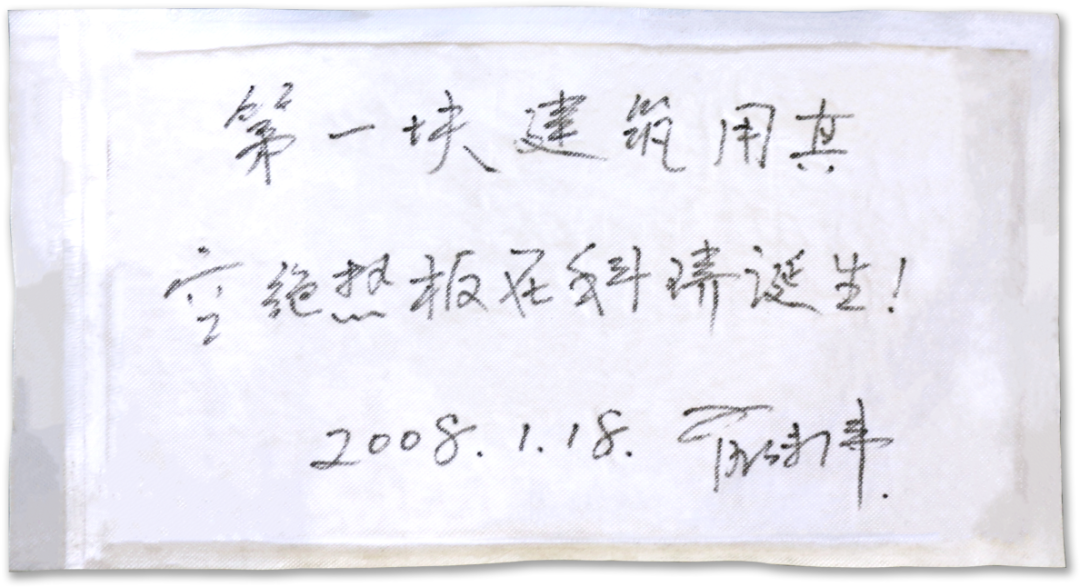 第一块建筑用真
空绝热板在科瑞诞生!
2008.1.18.